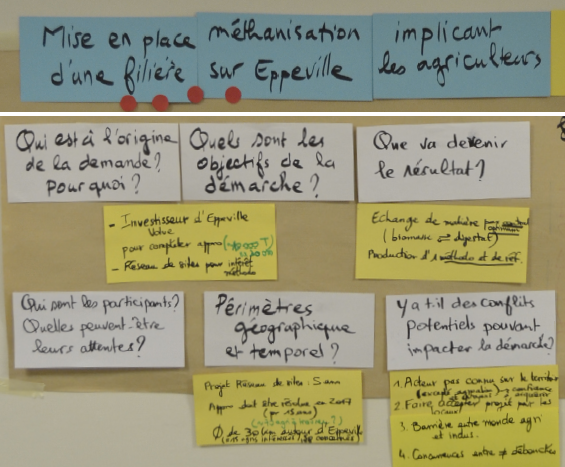 Mise en place
d'une filière
méthanisation
sur Eppeville
implicant
les agriculteurs
Qui est à l'origine
de la demande?
pourquoi?
Quels sont les
objectifs de la
démarche?
Que va devenir
le résultat?
- Investisseur d'Eppeville
pour compléter appro
- Réseau de sites pour intérêt
méthodo
Echange de matière
(biomasse ⇌ digestat)
Production d'1 méthodo et de réf.
Qui sont les participants?
Quelles peuvent être
leurs attentes?
Périmètres
géographique
et temporel?
Y a t-il des conflits
potentiels pouvant
impacter la démarche?
Projet Réseau de sites : 5 ans
Appro doit être rendue en 2017
(pr 15 ans)
Ø de 30 km autour d'Eppeville
1. Acteur pas connu sur le territoire
2. Faire accepter projet par les
3. Barrière entre monde agri
et indus.
4. Concurrences entre débouchés